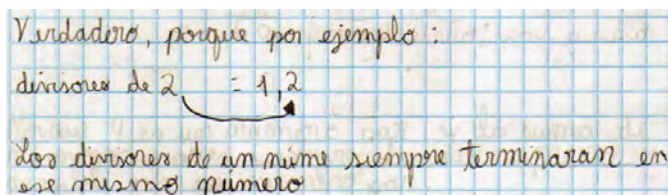 Verdadero, porque por ejemplo:
divisores de 2 = 1, 2
Los divisores de un núme siempre terminaran en
ese mismo número